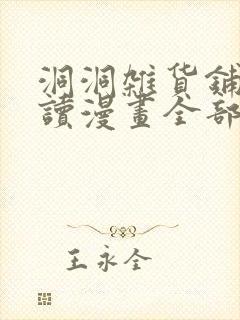 洞洞雜貨鋪
讀漫畫全部
王永全